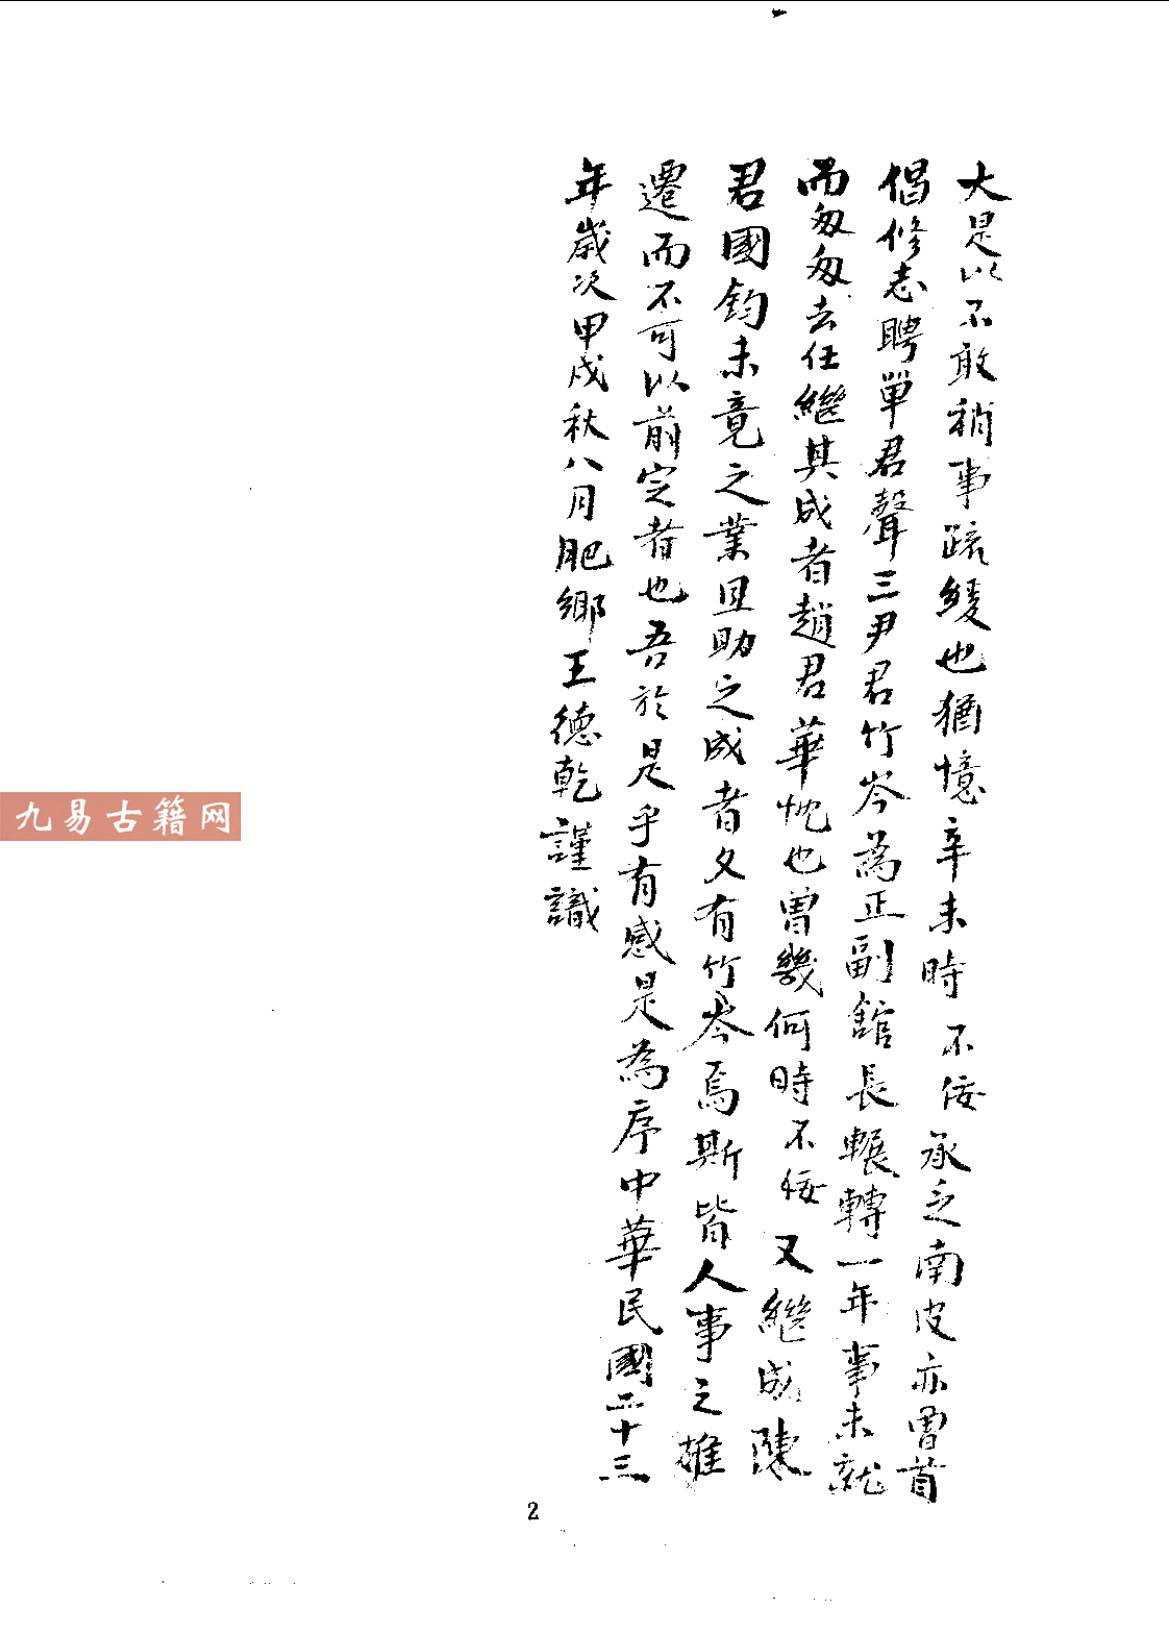 大是以不敢稍事疏緩也猶憶辛未時不佞承乏南皮亦曾首
倡修志聘單君聲三尹君竹岑為正副館長輾轉一年事未就
而匆匆去任繼其成者趙君華忱也曾幾何時不佞又繼成陳
君國鈞未竟之業且助之成者又有竹岑焉斯皆人事之推
遷而不可以前定者也吾於是乎有感是為序中華民國二十三
年歲次甲戌秋八月肥鄉王德乾謹識
九易古籍网
2